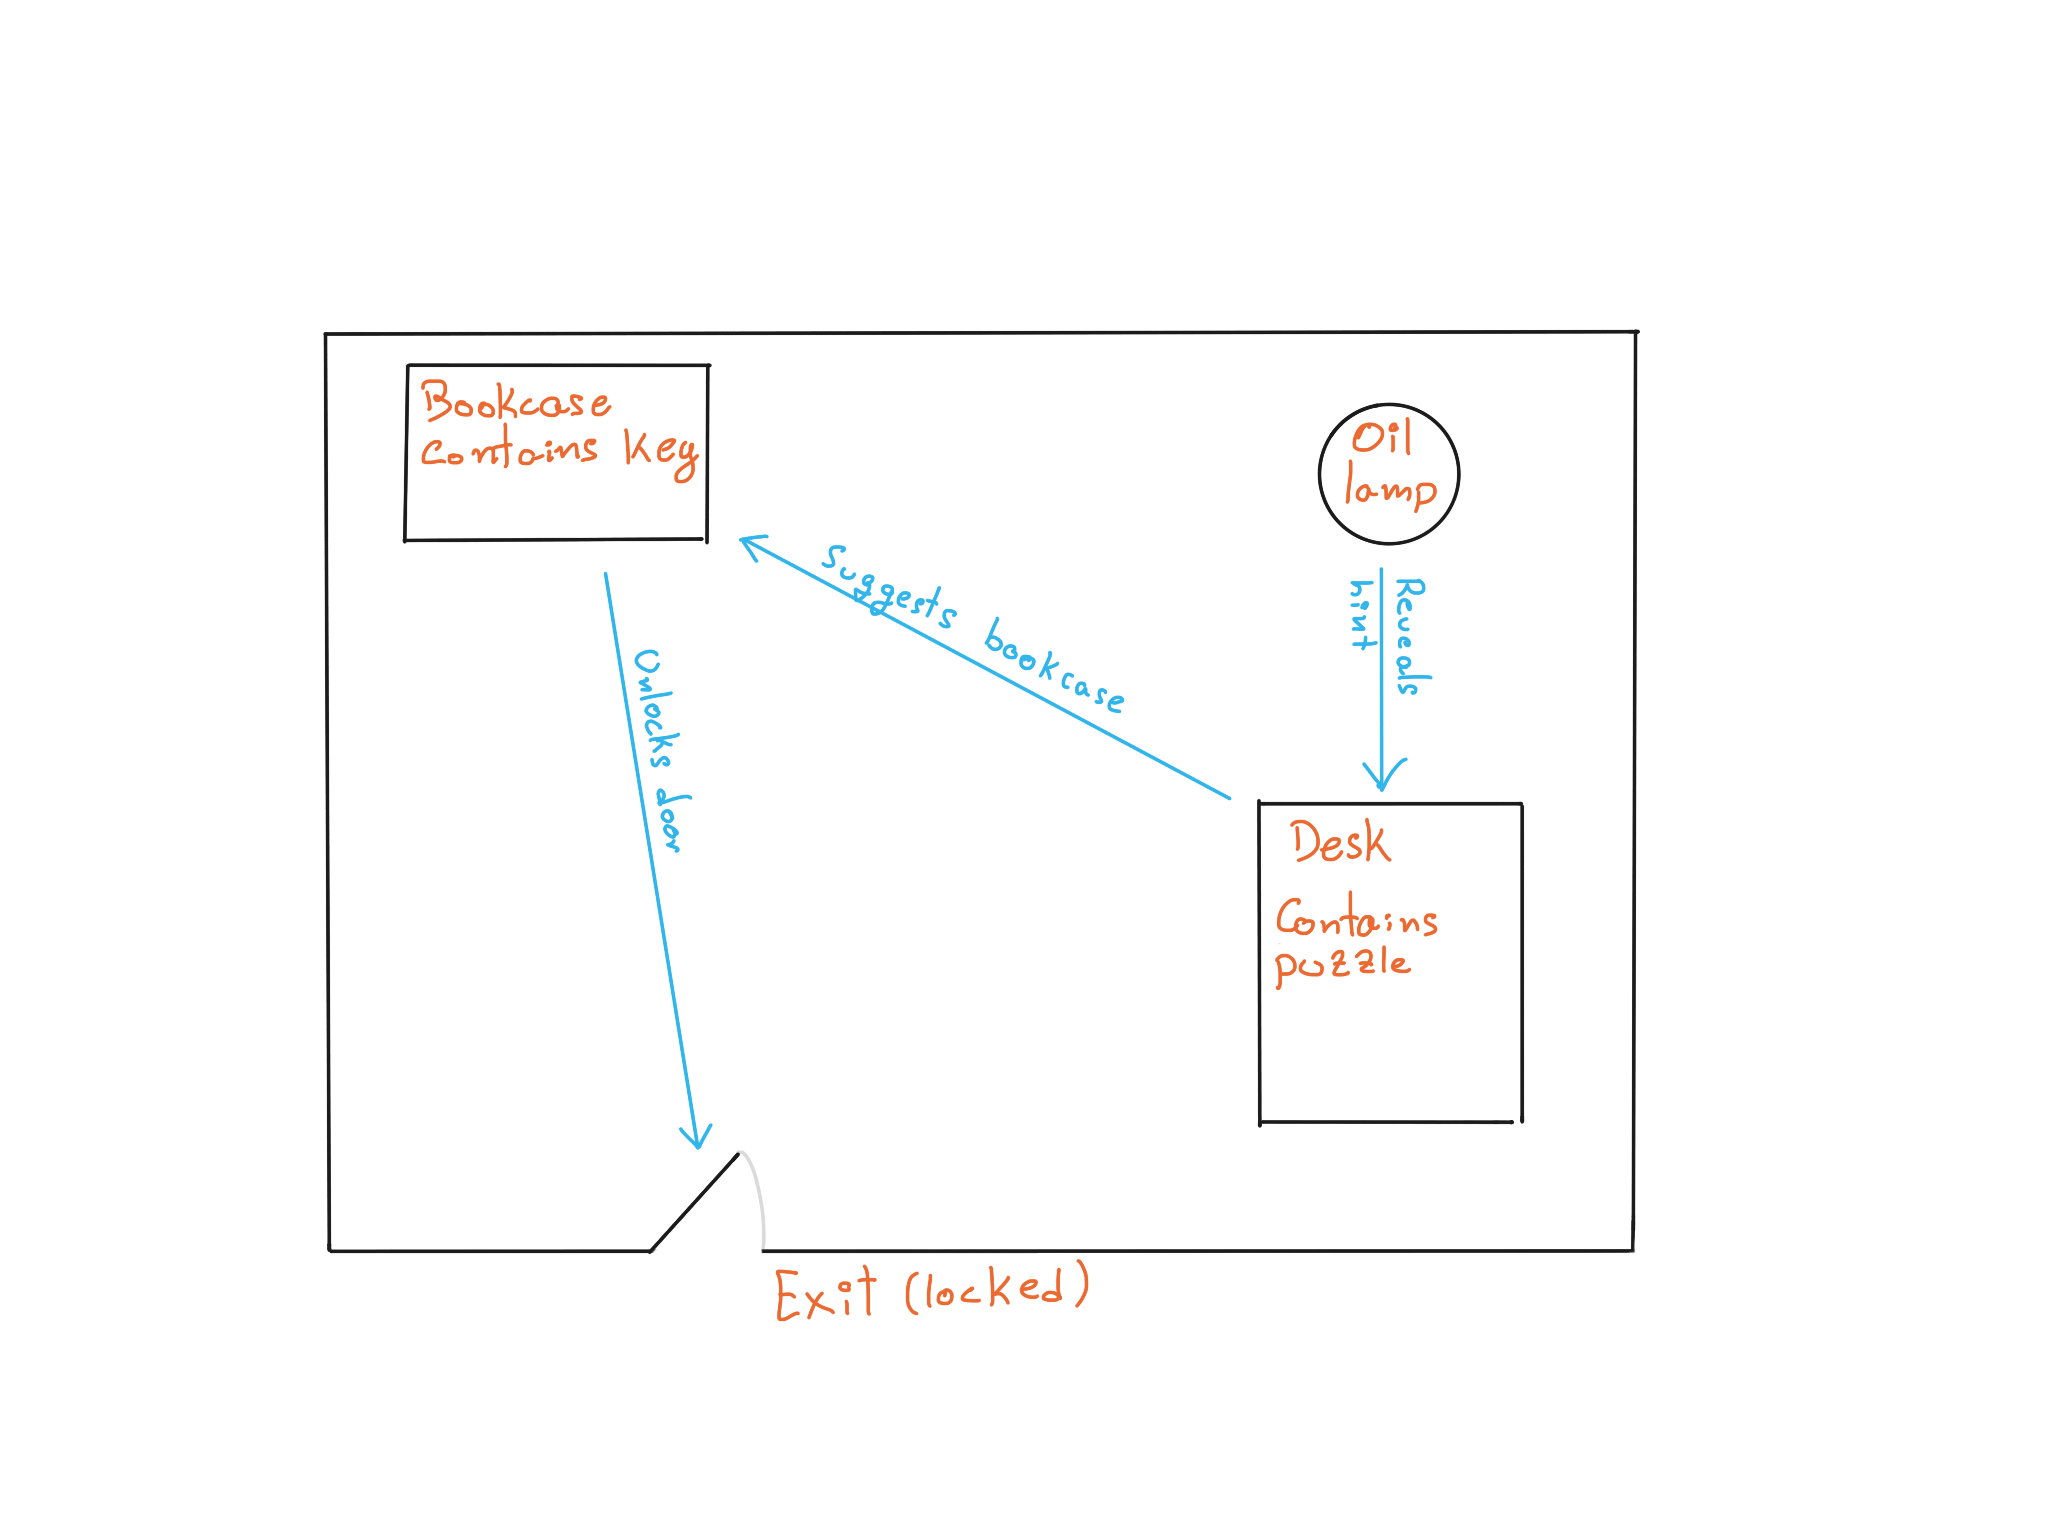 Bookcase
contains key
Oil
lamp
Suggests bookcase
Reveals
hint
Unlocks door
Desk
Contains
puzzle
Exit (locked)